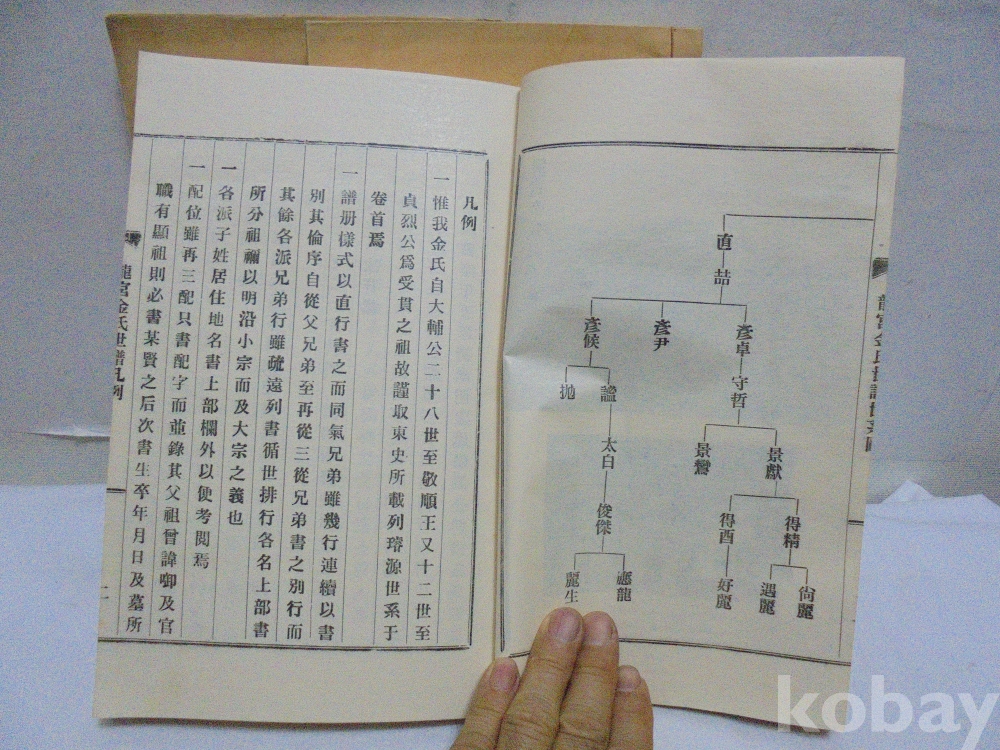 直
喆
彥卓
彥尹
彥候
守哲
謐
拋
景獻
景鸞
太白
得精
得酉
俊傑
尙麗
遇麗
好麗
龍
麗生
凡例
一惟我金氏自大輔公二十八世至敬順王又十二世至
貞烈公爲受貫之祖故謹取東史所載列璿源世系于
卷首焉
一譜册樣式以直行書之而同氣兄弟雖幾行連續以書
別其倫序自從父兄弟至再從三從兄弟書之別行而
其餘各派兄弟行雖疏遠列書循世排行各名上部書
所分祖禰以明沿小宗而及大宗之義也
一各派子姓居住地名書上部欄外以便考閱焉
一配位雖再三配只書配字而並錄其父祖曾諱啣及官
職有顯祖則必書某賢之后次書生卒年月日及墓所
龍宮金氏世譜凡例
kobay